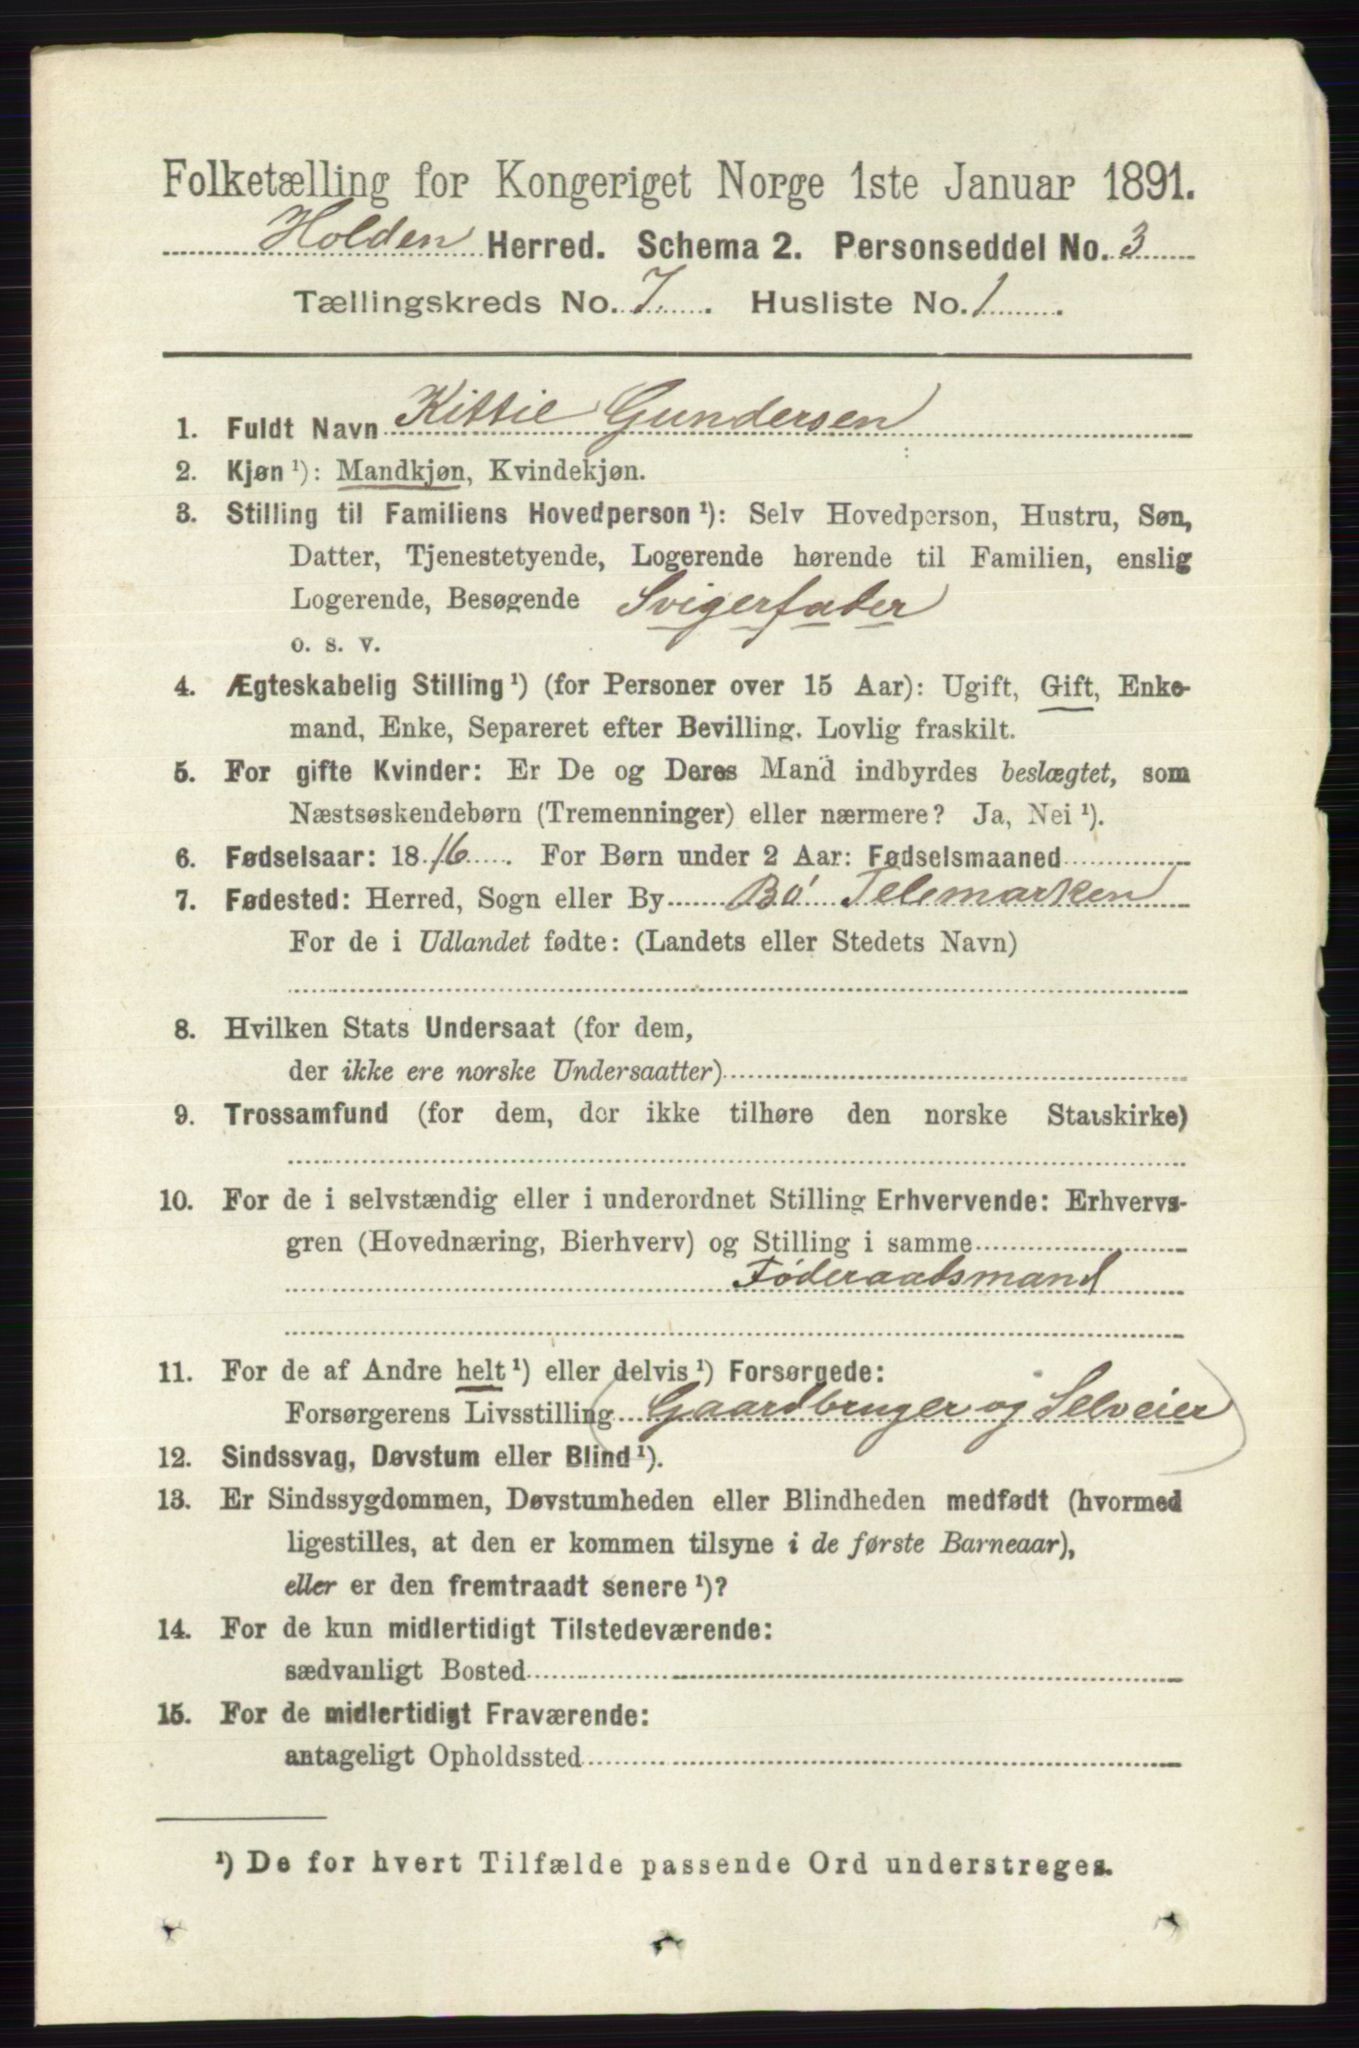 Folketælling for Kongeriget Norge 1ste Januar 1891.
Holden Herred. Schema 2. Personseddel No. 3
Tællingskreds No. 7. Husliste No. 1.
1. Fuldt Navn Kittil Gundersen
2. Kjøn ¹): Mandkjøn, Kvindekjøn.
3. Stilling til Familiens Hovedperson ¹): Selv Hovedperson, Hustru, Søn,
Datter, Tjenestetyende, Logerende hørende til Familien, enslig
Logerende, Besøgende Svigerfader
o. s. v.
4. Ægteskabelig Stilling ¹) (for Personer over 15 Aar): Ugift, Gift, Enke-
mand, Enke, Separeret efter Bevilling. Lovlig fraskilt.
5. For gifte Kvinder: Er De og Deres Mand indbyrdes beslægtet, som
Næstsøskendebørn (Tremenninger) eller nærmere? Ja, Nei ¹).
6. Fødselsaar: 1816. For Børn under 2 Aar: Fødselsmaaned
7. Fødested: Herred, Sogn eller By Bø Telemarken
For de i Udlandet fødte: (Landets eller Stedets Navn)
8. Hvilken Stats Undersaat (for dem,
der ikke ere norske Undersaatter)
9. Trossamfund (for dem, der ikke tilhøre den norske Statskirke)
10. For de i selvstændig eller i underordnet Stilling Erhvervende: Erhvervs-
gren (Hovednæring, Bierhverv) og Stilling i samme
Føderaadsmand
11. For de af Andre helt ¹) eller delvis ¹) Forsørgede:
Forsørgerens Livsstilling (Gaardbruger og Selveier)
12. Sindssvag, Døvstum eller Blind ¹).
13. Er Sindssygdommen, Døvstumheden eller Blindheden medfødt (hvormed
ligestilles, at den er kommen tilsyne i de første Barneaar),
eller er den fremtraadt senere ¹)?
14. For de kun midlertidigt Tilstedeværende:
sædvanligt Bosted
15. For de midlertidigt Fraværende:
antageligt Opholdssted
¹) De for hvert Tilfælde passende Ord understreges.